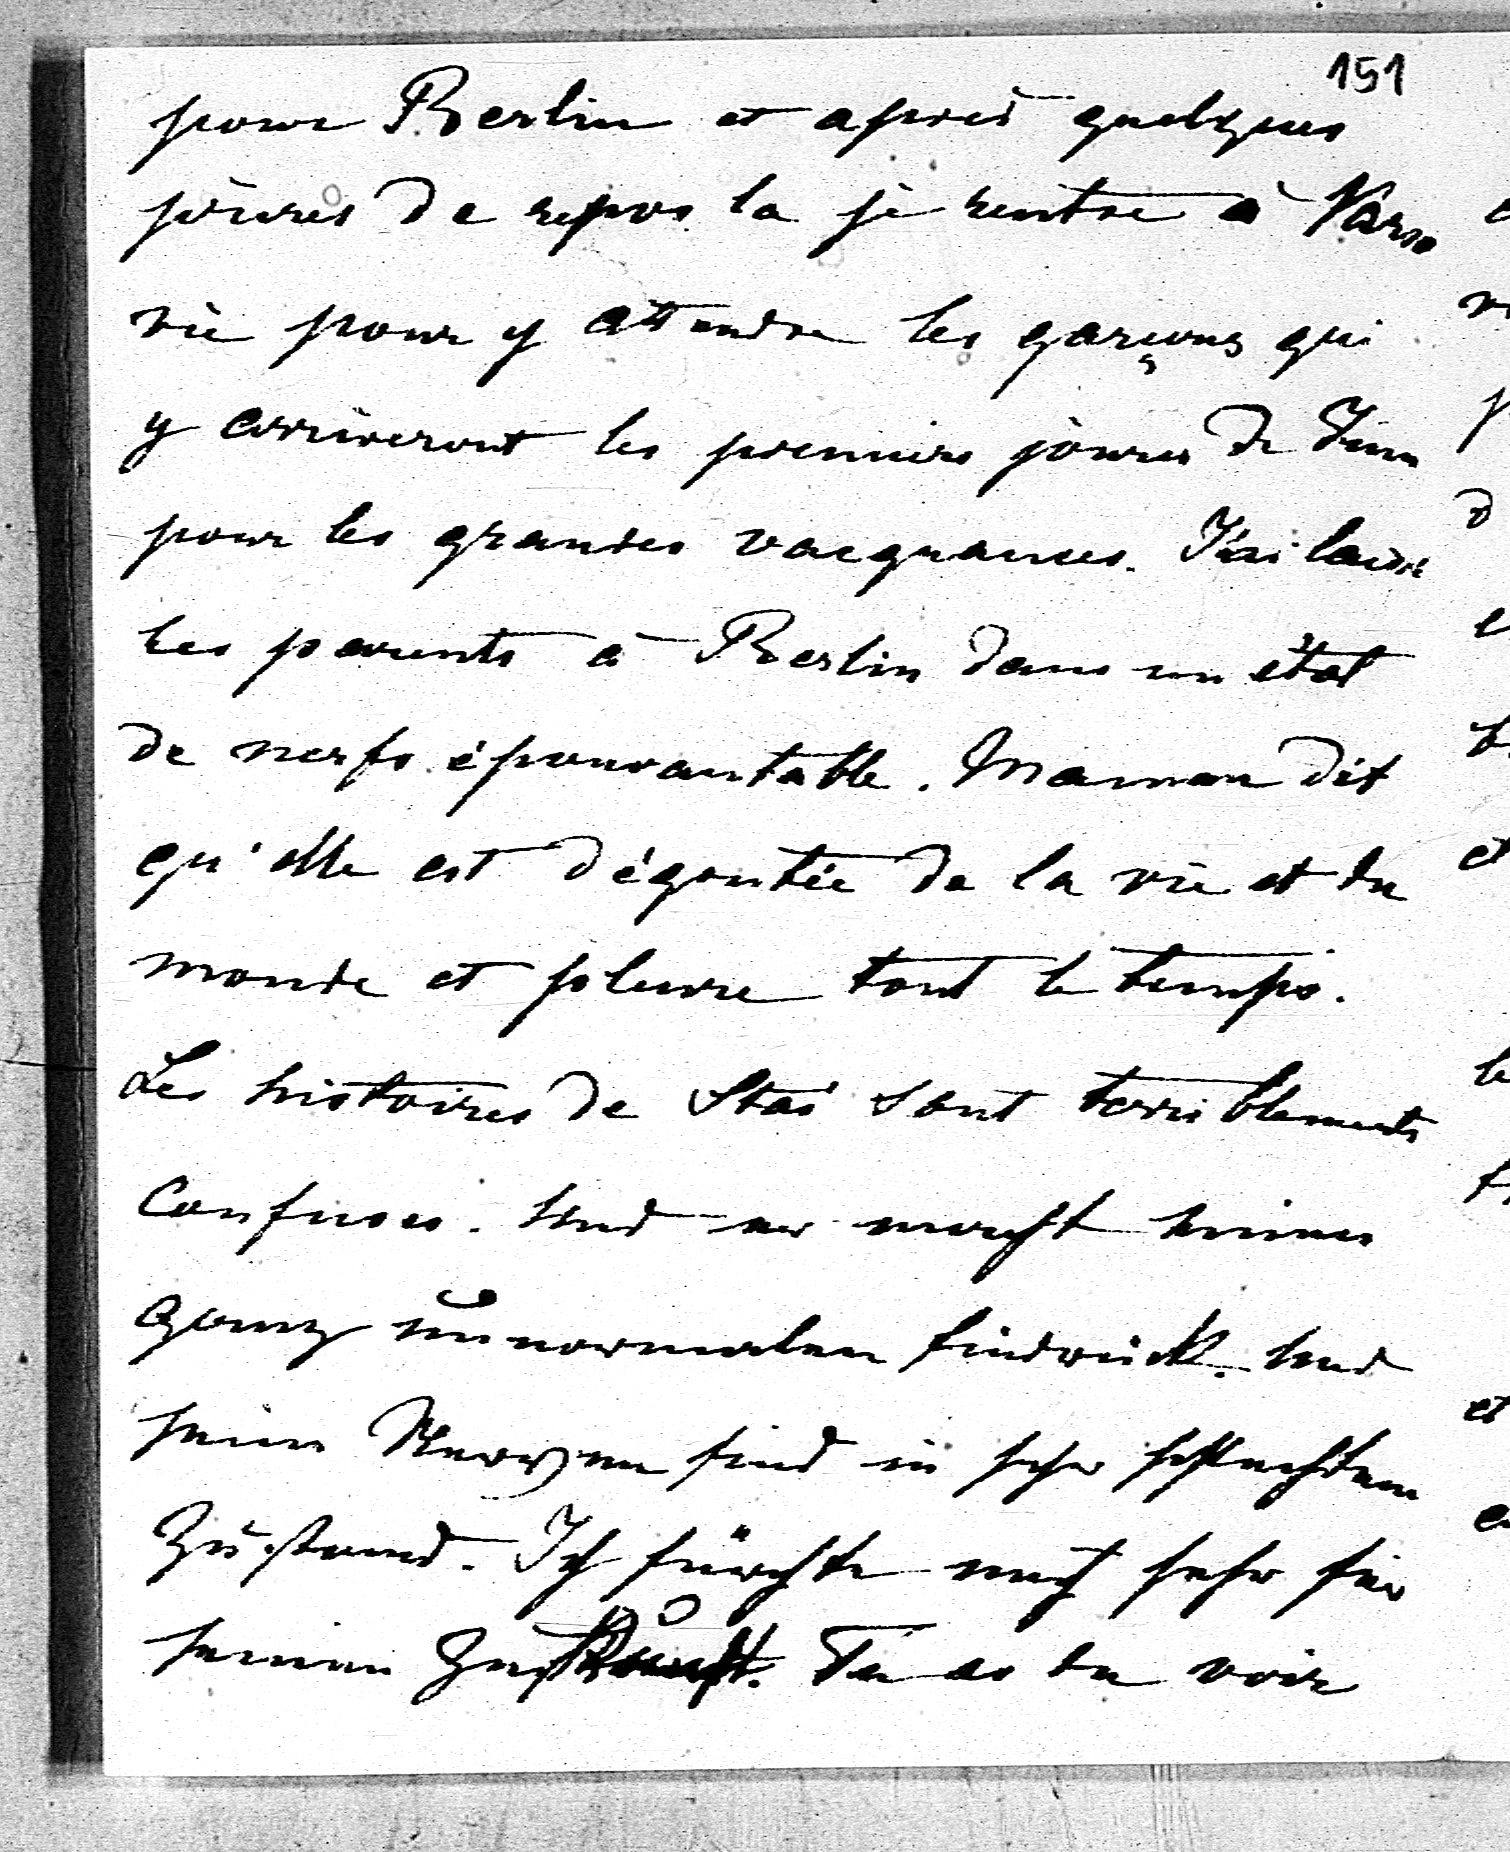 151
pour Berlin et après quelques
jours de repos la je rentre à Varso
vie pour y attendre les garçons qui
y arriveront les premiers jours de Juin
pour les grandes vacquances. J'ai laissé
les parents à Berlin dans un état
de nerfs épouvantable. Maman dit
qu'elle est dégoutée de la vie et du
monde et pleure tout le temps.
Les histoires de Stas sont terriblements
confuses. Und er macht einen
ganz unnormalen Eindruck. Und
seine Nerven sind in sehr schlechtem
Zustand. Ich fürchte mich sehr für
seinen Zustand. Tu as du voir